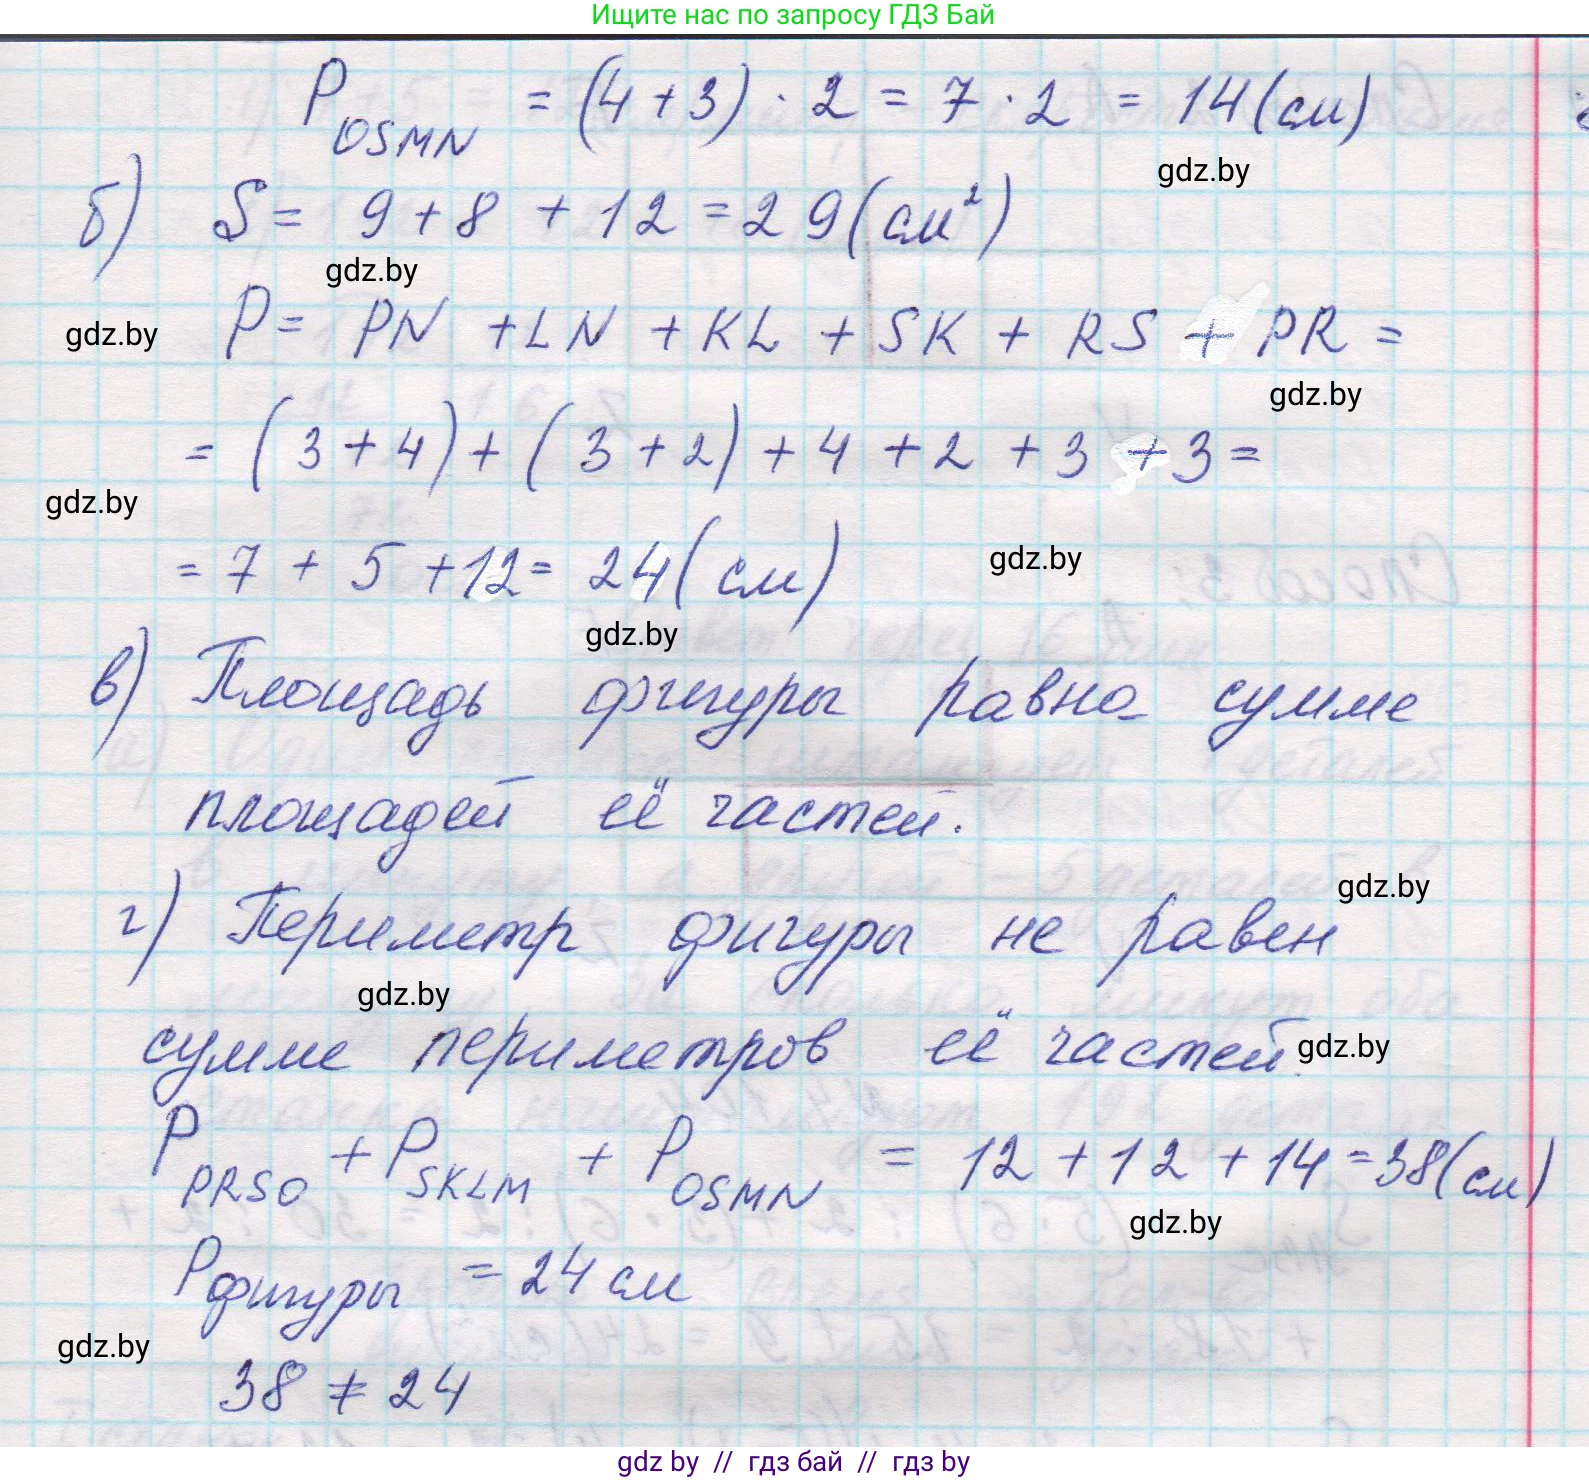 Ищите нас по запросу ГДЗ Бай
P OSMN = (4 + 3) · 2 = 7 · 2 = 14 (см)
gdz.by
б) S = 9 + 8 + 12 = 29 (см²)
gdz.by
gdz.by
P = PN + LN + KL + SK + RS + PR =
gdz.by
= (3 + 4) + (3 + 2) + 4 + 2 + 3 + 3 =
gdz.by
= 7 + 5 + 12 = 24 (см)
gdz.by
gdz.by
в) Площадь фигуры равна сумме
площадей её частей.
gdz.by
г) Периметр фигуры не равен
gdz.by
сумме периметров её частей
gdz.by
P PRSO + P SKLM + P OSMN = 12 + 12 + 14 = 38 (см)
gdz.by
P фигуры = 24 см
gdz.by
38 ≠ 24
gdz by // гдз бай // гдз by